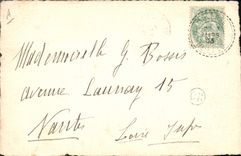 Mademoiselle G. Bossis
avenue Launay 15
Nantes
Loire Infre